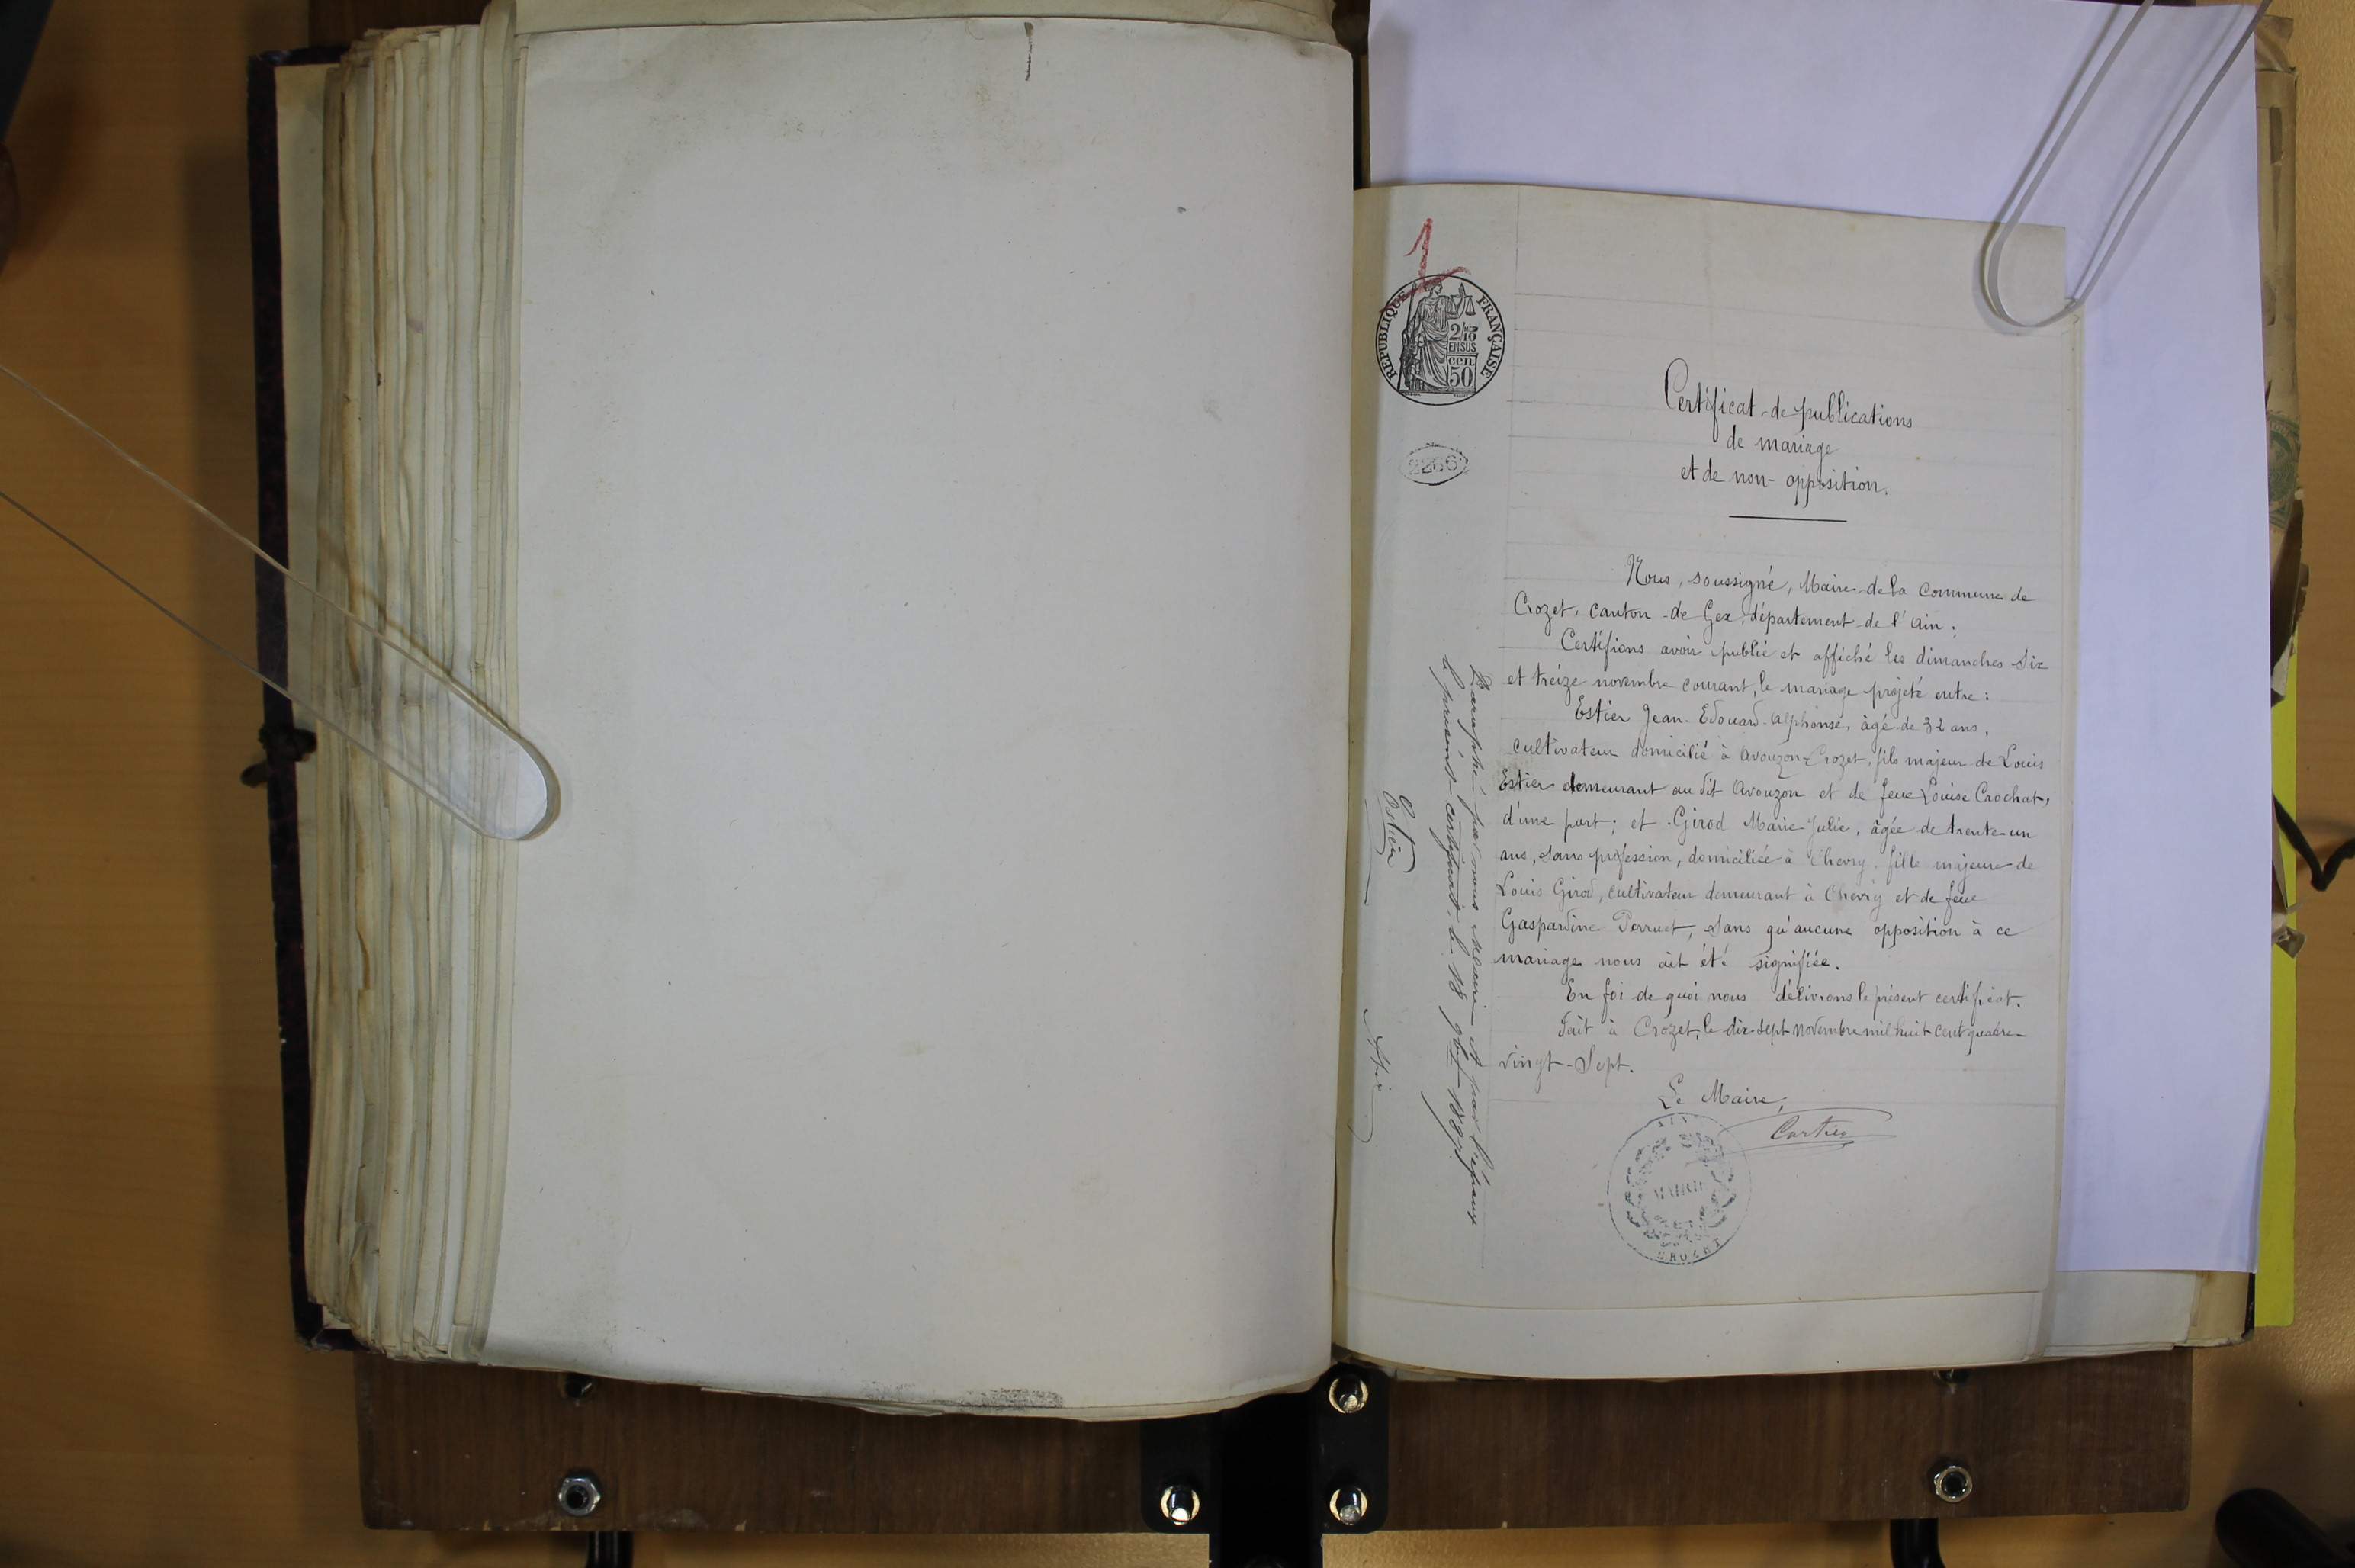 1
REPUBLIQUE FRANÇAISE
2/10
EN SUS
cen.
50
2266
Certificat de publications
de mariage
et de non-opposition.
Nous, soussigné, Maire de la Commune de
Crozet, canton de Gex, département de l'Ain;
Certifions avoir publié et affiché les dimanches six
et treize novembre courant, le mariage projeté entre:
Estier Jean-Edouard-Alphonse, âgé de 32 ans,
cultivateur domicilié à Avouzon-Crozet, fils majeur de Louis
Estier demeurant au dit Avouzon et de feue Louise Crochat,
d'une part; et Girod Marie-Julie, âgée de trente-un
ans, sans profession, domiciliée à Chevry, fille majeure de
Louis Girod, cultivateur demeurant à Chevry et de feue
Gaspardine Perruet, sans qu'aucune opposition à ce
mariage nous ait été signifiée.
En foi de quoi nous délivrons le présent certificat.
Fait à Crozet, le dix-sept novembre mil huit cent quatre-
vingt-Sept.
Le Maire,
Cartier
MAIRIE
CROZET
AIN
Paraphé par nous et par l'époux
le présent certificat, le 18 9bre 1887
Estier